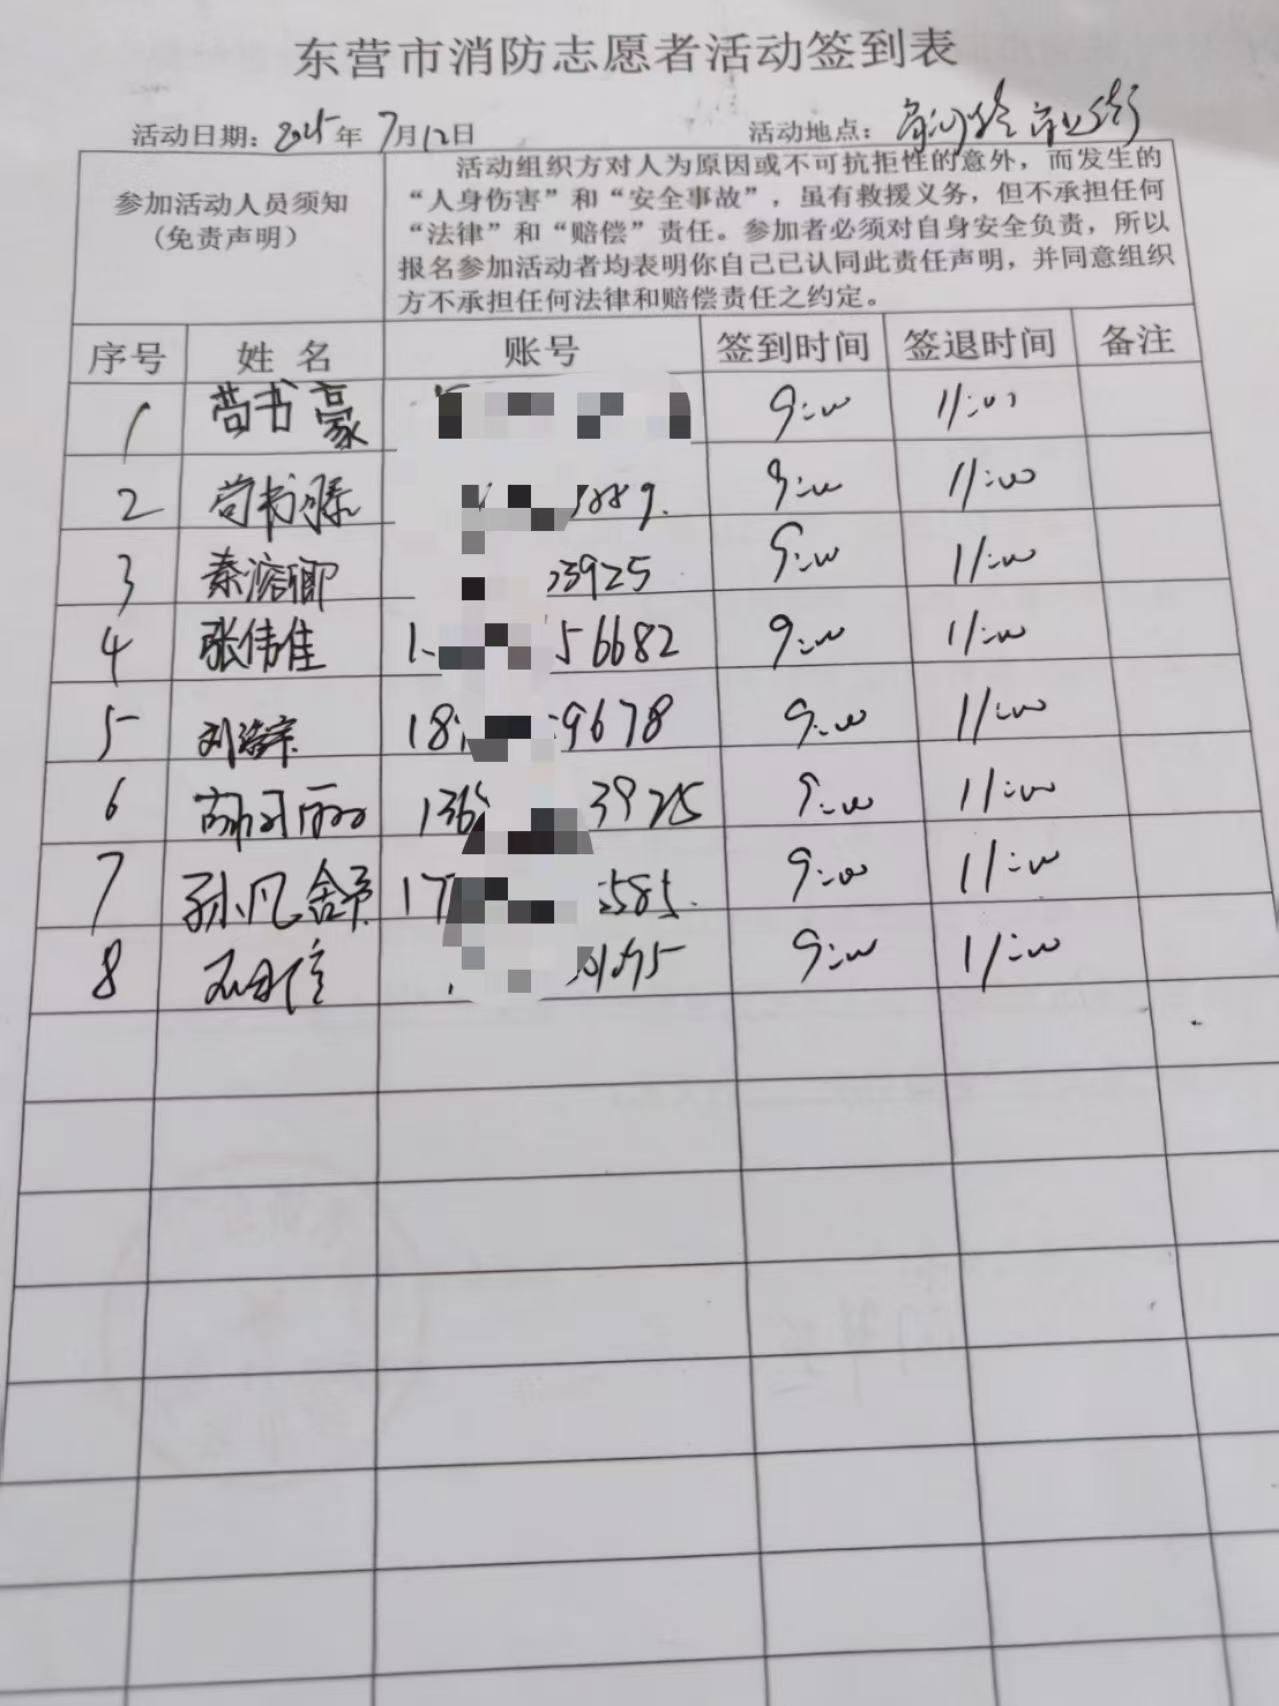 东营市消防志愿者活动签到表
活动日期：2025年7月12日 活动地点：
参加活动人员须知
（免责声明）
活动组织方对人为原因或不可抗拒性的意外，而发生的
“人身伤害”和“安全事故”，虽有救援义务，但不承担任何
“法律”和“赔偿”责任。参加者必须对自身安全负责，所以
报名参加活动者均表明你自己已认同此责任声明，并同意组织
方不承担任何法律和赔偿责任之约定。
序号 姓名 账号 签到时间 签退时间 备注
1 苟书豪 9:00 11:00
2 苟书 9:00 11:00
3 秦溶卿 3925 9:00 11:00
4 张伟佳 1 56682 9:00 11:00
5 刘 18 9678 9:00 11:00
6 136 3925 9:00 11:00
7 孙凡舒 17 585 9:00 11:00
8 9:00 11:00